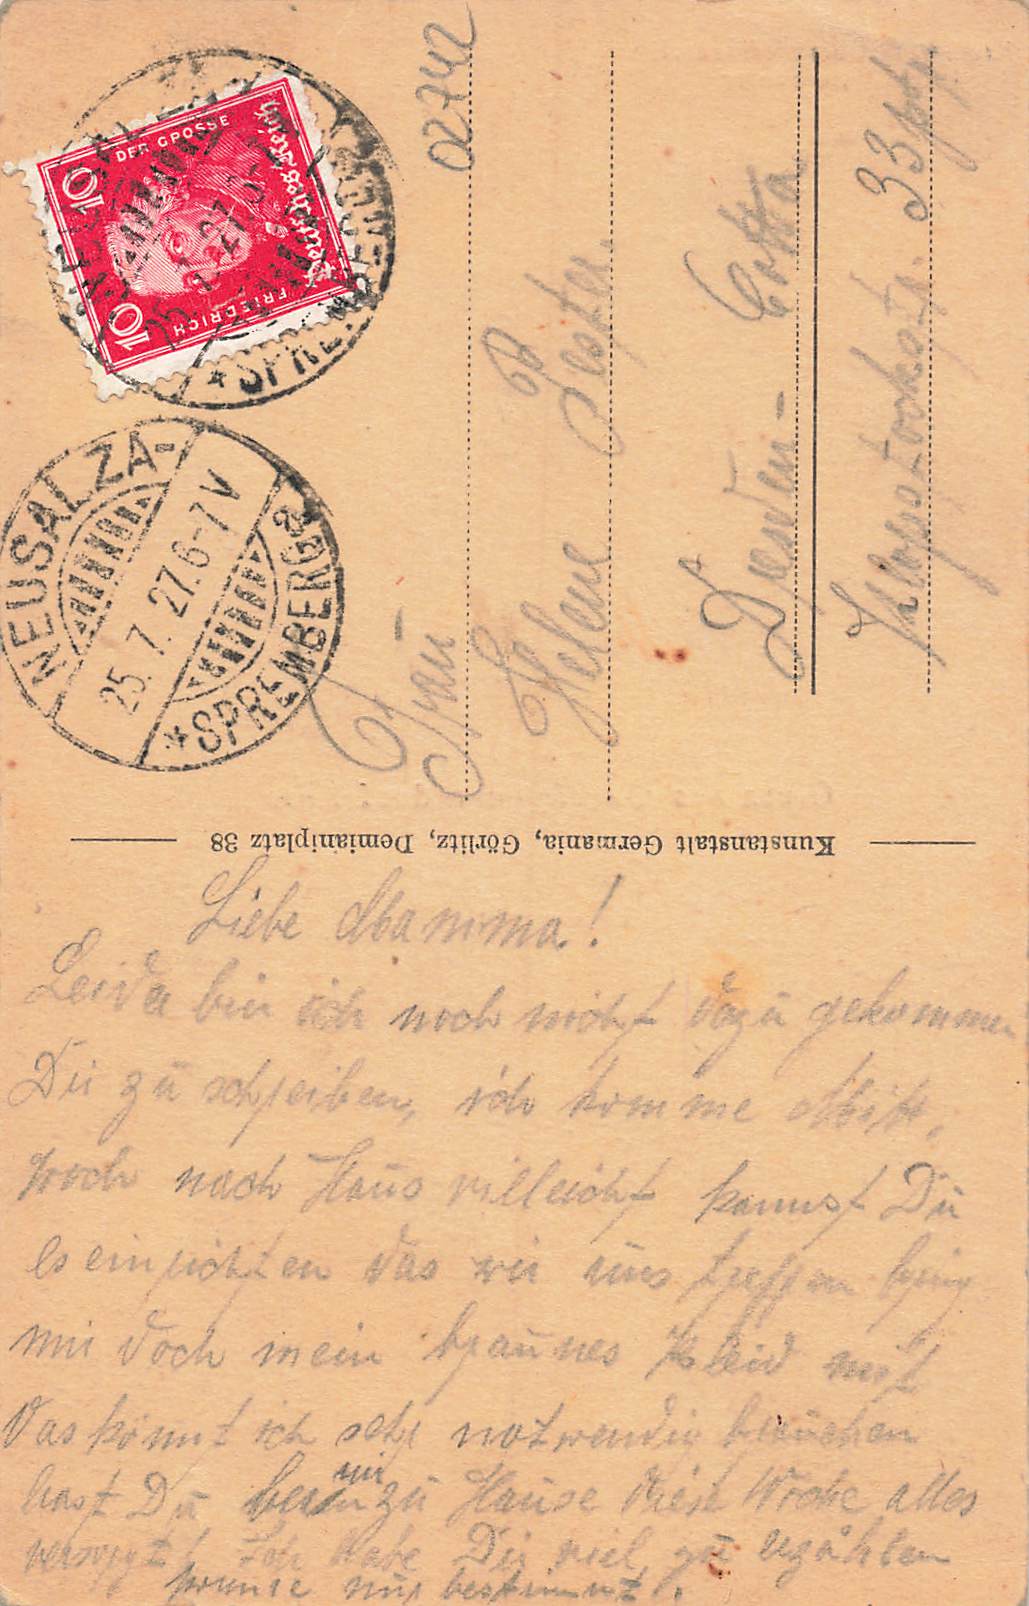 02742
10 10
DER GROSSE
FRIEDRICH
Deutsches Reich
NEUSALZA-
25.7.27.6-7V
*SPREMBERG a
Frau
Helene Pester.
Dresden-Cotta
Klopstockstr. 33 ptr
Kunstanstalt Germania, Görlitz, Demianiplatz 38
Liebe Mamma!
Leider bin ich noch nicht dazu gekommen
Dir zu schreiben, ich komme Mitt-
woch nach Haus villeicht kannst Du
es einrichten das wir uns treffen bring
mir doch mein braunes Kleid mit
das könnt ich sehr notwendig brauchen
hast Du mir zu Hause diese Woche alles
versorgt! Ich habe Dir viel zu erzählen
komme nur bestimmt.